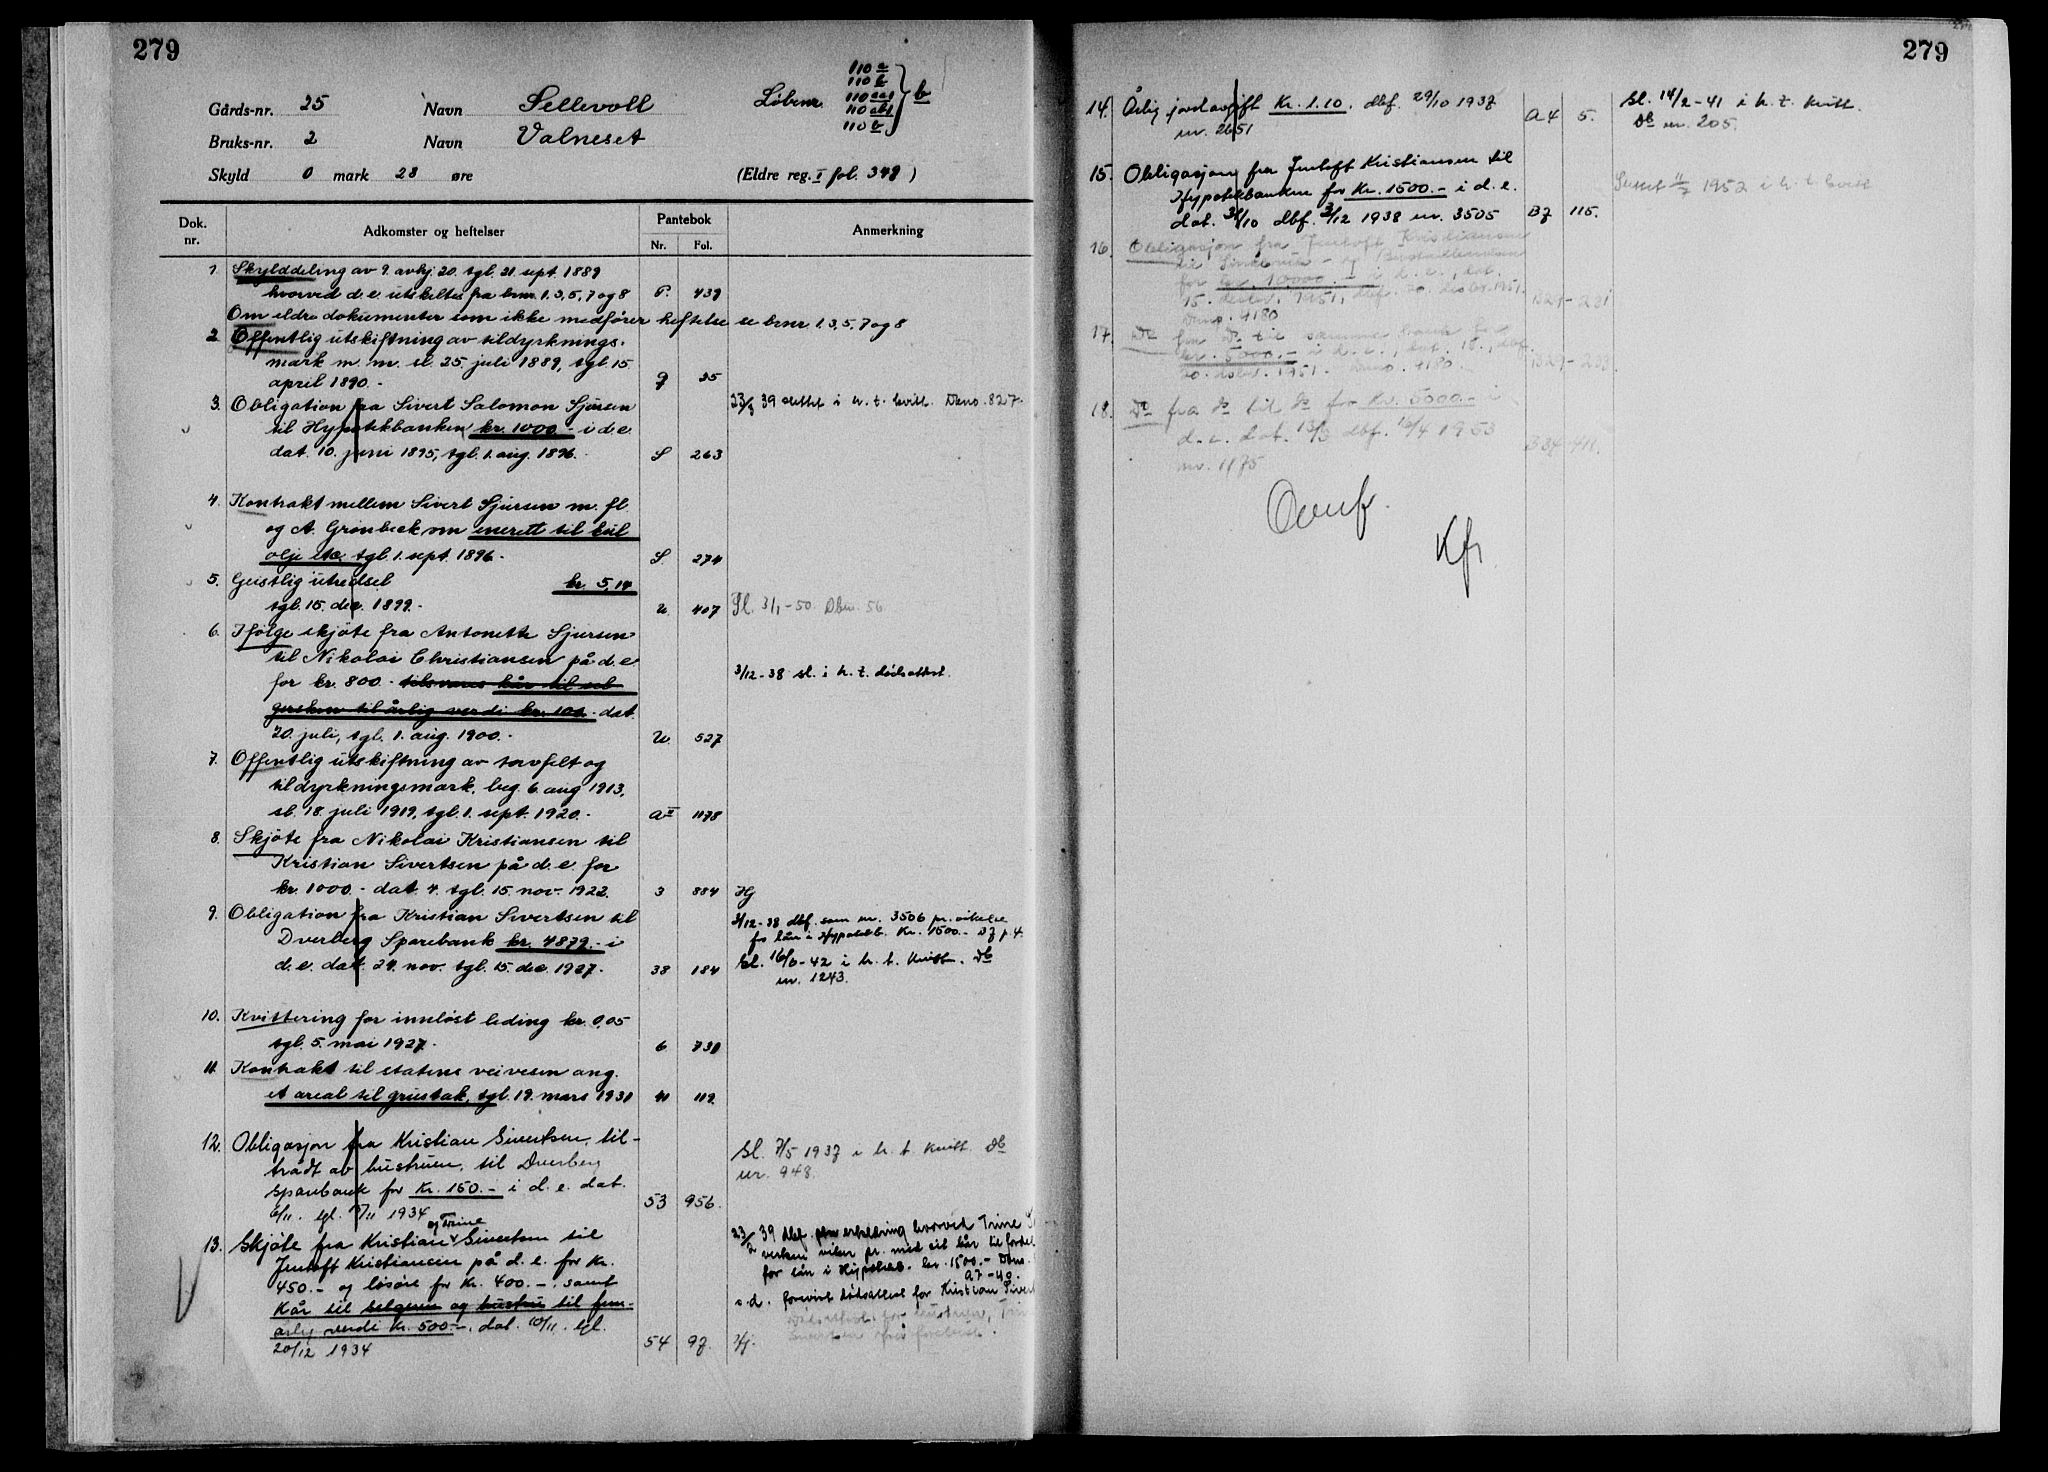 279
Gårds-nr. 25 Navn Sellevoll Løbenr. 110 a
110 b
110 aa1
110 ab1
110 b } b
Bruks-nr. 2 Navn Valneset
Skyld 0 mark 28 øre (Eldre reg. I fol. 348)
Dok. nr. Adkomster og heftelser Pantebok Nr. Fol. Anmerkning
1. Skylddeling av 9. avhj. 20. tgl. 21. sept. 1889
hvorved d.e. utskiltes fra brnr. 1, 3, 5, 7 og 8 P. 439
Om eldre dokumenter som ikke medfører heftelse se brnr. 1, 3, 5, 7 og 8
2. Offentlig utskiftning av tildyrknings-
mark m. m. sl. 25. juli 1889, tgl. 15.
april 1890. - Q 35
3. Obligation fra Sivert Salomon Sjursen 23/3 39 slettet i h. t. kvitt. Dano. 827.
til Hypotekbanken kr. 1000 - i d.e.
dat. 10. juni 1895, tgl. 1. aug. 1896. - S 263
4. Kontrakt mellem Sivert Sjursen m. fl.
og A. Grønbeck om enerett til kul
olje etc. tgl. 1. sept. 1896. - S. 274
5. Geistlig utredsel kr. 5,14
tgl. 15. des. 1899. - U. 407 Sl. 3/1-50. Dbnr. 56
6. Ifølge skjøte fra Antonette Sjursen
til Nikolai Christiansen på d.e.
for kr. 800 - tilsvares kår til sel- 3/12-38 sl. i h. t. dødsattest.
gersken til årlig verdi kr. 100 - dat.
20. juli, tgl. 1. aug. 1900. - U. 527
7. Offentlig utskiftning av torvfelt og
tildyrkningsmark, beg. 6. aug 1913,
sl. 18. juli 1919, tgl. 1. sept. 1920. - A II 1178
8. Skjøte fra Nikolai Kristiansen til
Kristian Sivertsen på d.e. for
kr. 1000. - dat. 4. tgl. 15. nov. 1922. 3 884 Hj
9. Obligation fra Kristian Sivertsen til 3/12-38 dbf. som nr. 3506 pr. vikelse
Dverberg Sparebank kr. 4879. - i for lån i Hypotekb. Kr. 1500.- D7 p. 4.
d.e. dat. 24. nov. tgl. 15. des. 1927. 38 184 Sl. 16/6-42 i h. t. kvitt. Db
nr. 1243.
10. Kvittering for innløst leding kr. 0,05
tgl. 5. mai 1927. 6 731
11. Kontrakt til statens veivesen ang.
et areal til grustak, tgl. 19. mars 1931 41 119.
12. Obligasjon fra Kristian Sivertsen, til- Sl. 7/5 1937 i h. t. kvitt. Db
trådt av hustruen, til Dverberg nr. 948.
sparebank for Kr. 150.- i d. e. dat.
6/11. tgl. 17/11 1934 53 956.
13. Skjøte fra Kristian og Trine Sivertsen til 23/2 39 dbf. erklæring hvorved Trine S
Jentoft Kristiansen på d. e. for Kr. viker pr. med sit kår til fordel
450.- og løsøre for Kr. 400.-. samt for lån i Hypotekb. kr. 1500.- Dano.
A7-40.
Kår til selgeren og hustru til fem- s.d. forevist dødsattest for Kristian Sivert
årlig verdi Kr. 500.-. dat. 10/11. tgl. Dødsattest for hustruen, Trin
20/12 1934 54 97. Hj. Sivertsen forevist.
279
14. Årlig jordavgift Kr. 1.10. dbf. 29/10 1937 A 4 5. Sl. 14/2-41 i h. t. kvitt.
nr. 2651 Db nr. 205.
15. Obligasjon fra Jentoft Kristiansen til
Hypotekbanken for Kr. 1500.- i d. e. Slettet 11/7 1952 i h. t. kvitt
dat. 31/10 dbf. 3/12 1938 nr. 3505 B7 115.
16. Obligasjon fra Jentoft Kristiansen
til Småbruk- og Bustadbanken
for kr. 10000.- i d. e., dat.
15. desbr. 1951, dbf. 20. desbr. 1951. B29-231
Dano. 4180
17. Do fra Do til samme bank for
kr. 5000.- i d. e., dat. 18., dbf.
20. desbr. 1951. Dano. 4180. B29-233.
18. Do fra do til do for Kr. 5000.- i
d. e. dat. 13/3 dbf. 16/4 1953
nr. 1175 B34-411.
Overf.
Kfr.